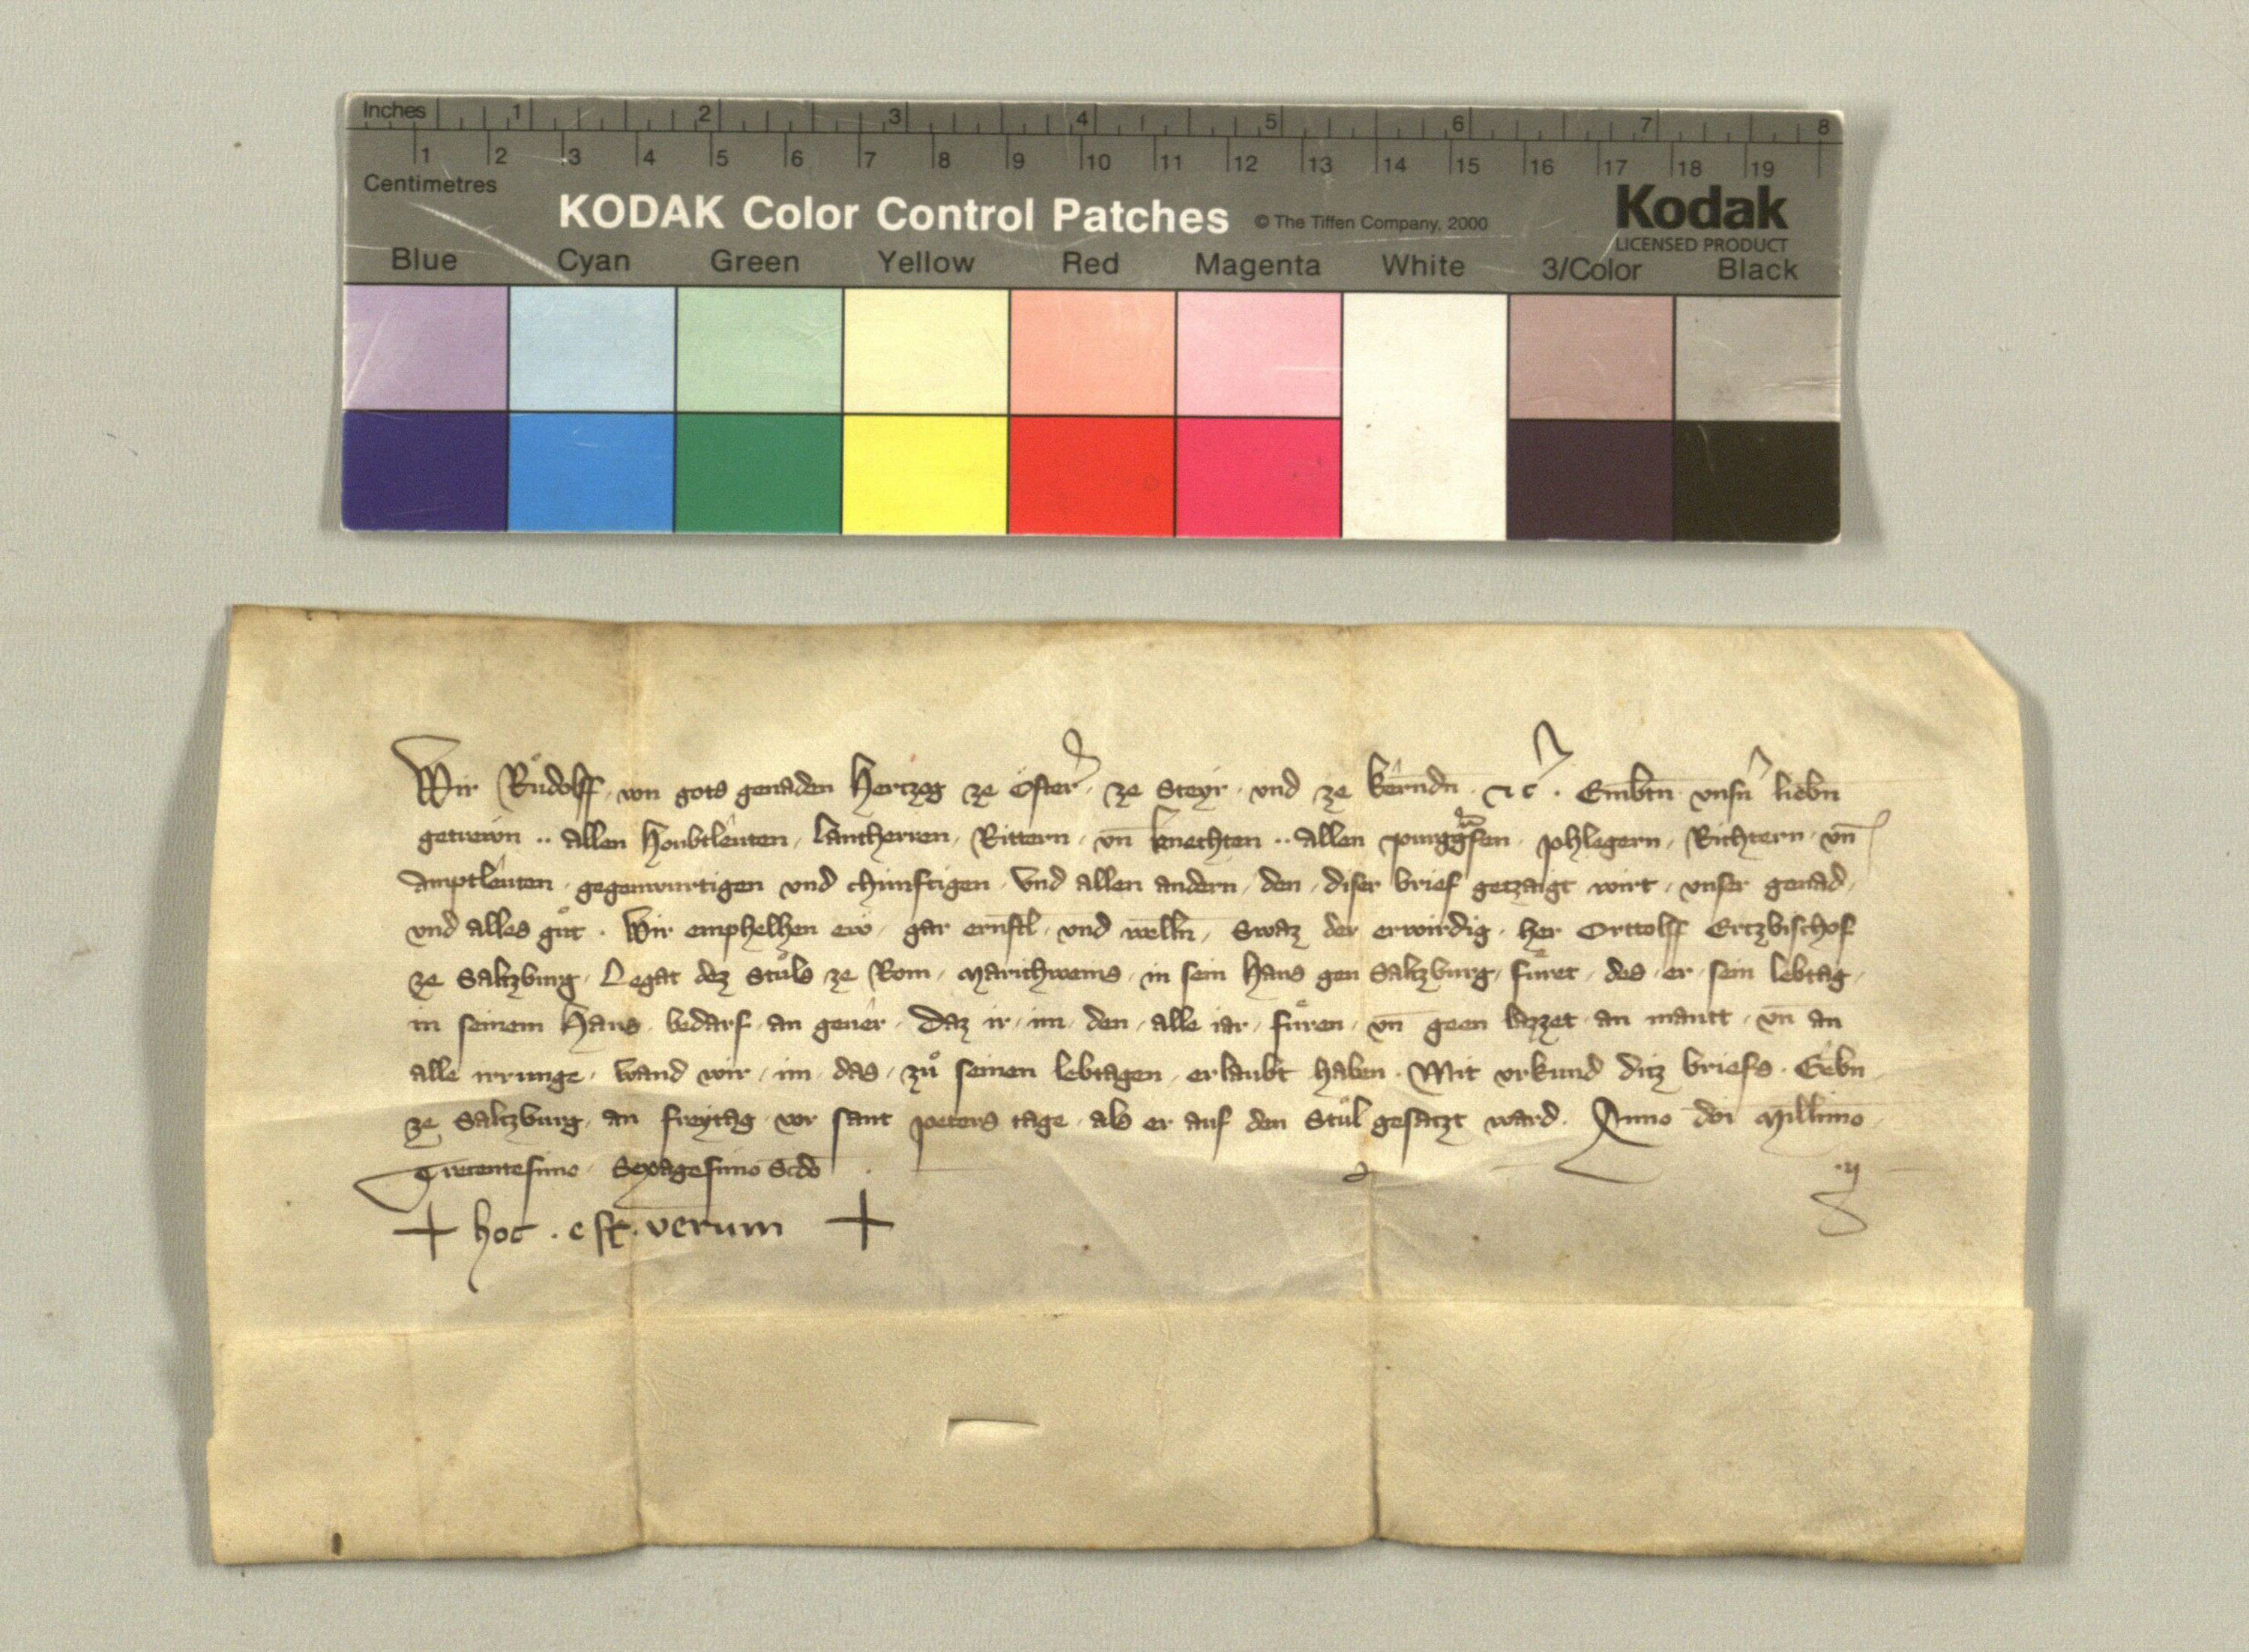 Inches 1 2 3 4 5 6 7 8
1 2 3 4 5 6 7 8 9 10 11 12 13 14 15 16 17 18 19
Centimetres
KODAK Color Control Patches © The Tiffen Company, 2000 Kodak
LICENSED PRODUCT
Blue Cyan Green Yellow Red Magenta White 3/Color Black
Wir Růdolff von gots genaden Hertzog ze Öster̄ ze Steyr und ze kerndn ⁊c̄ . Embtn unsn̄ liebn
getrewn .. allen Houbtleuten, lantherren, Rittern, un̄ knechten .. allen purggrafen, phlegern, Richtern, un̄
Amptleuten, gegenwurtigen und chunftigen, Und allen andern, den, diser brief getzaigt wirt, unser genad,
und alles gůt . Wir emphelhen ew, gar ernstl, und welln̄, Swaz der erwirdig, her Orttolff Ertzbischof
ze Saltzburg, Legat dez Stůls ze Rom, Marichweins, in sein haus gen Saltzburg, fůret, des er, sein lebtag,
in seinem Haus, bedarf, an geuer, Daz ir, im, den, alle iar, fůren, un̄ geen lazzet an mautt, un̄ an
alle irrunge, wand wir, im, das, zů seinen lebtagen, erlaubt haben. Mit urkund ditz briefs. Gebn
ze Saltzburg, an freytag vor sant peters tage, als er auf den Stůl gesatzt ward. Anno dm̄i Millīmo
Trecentesimo, Sexagesimo Scdō
+ hoc . est . verum +